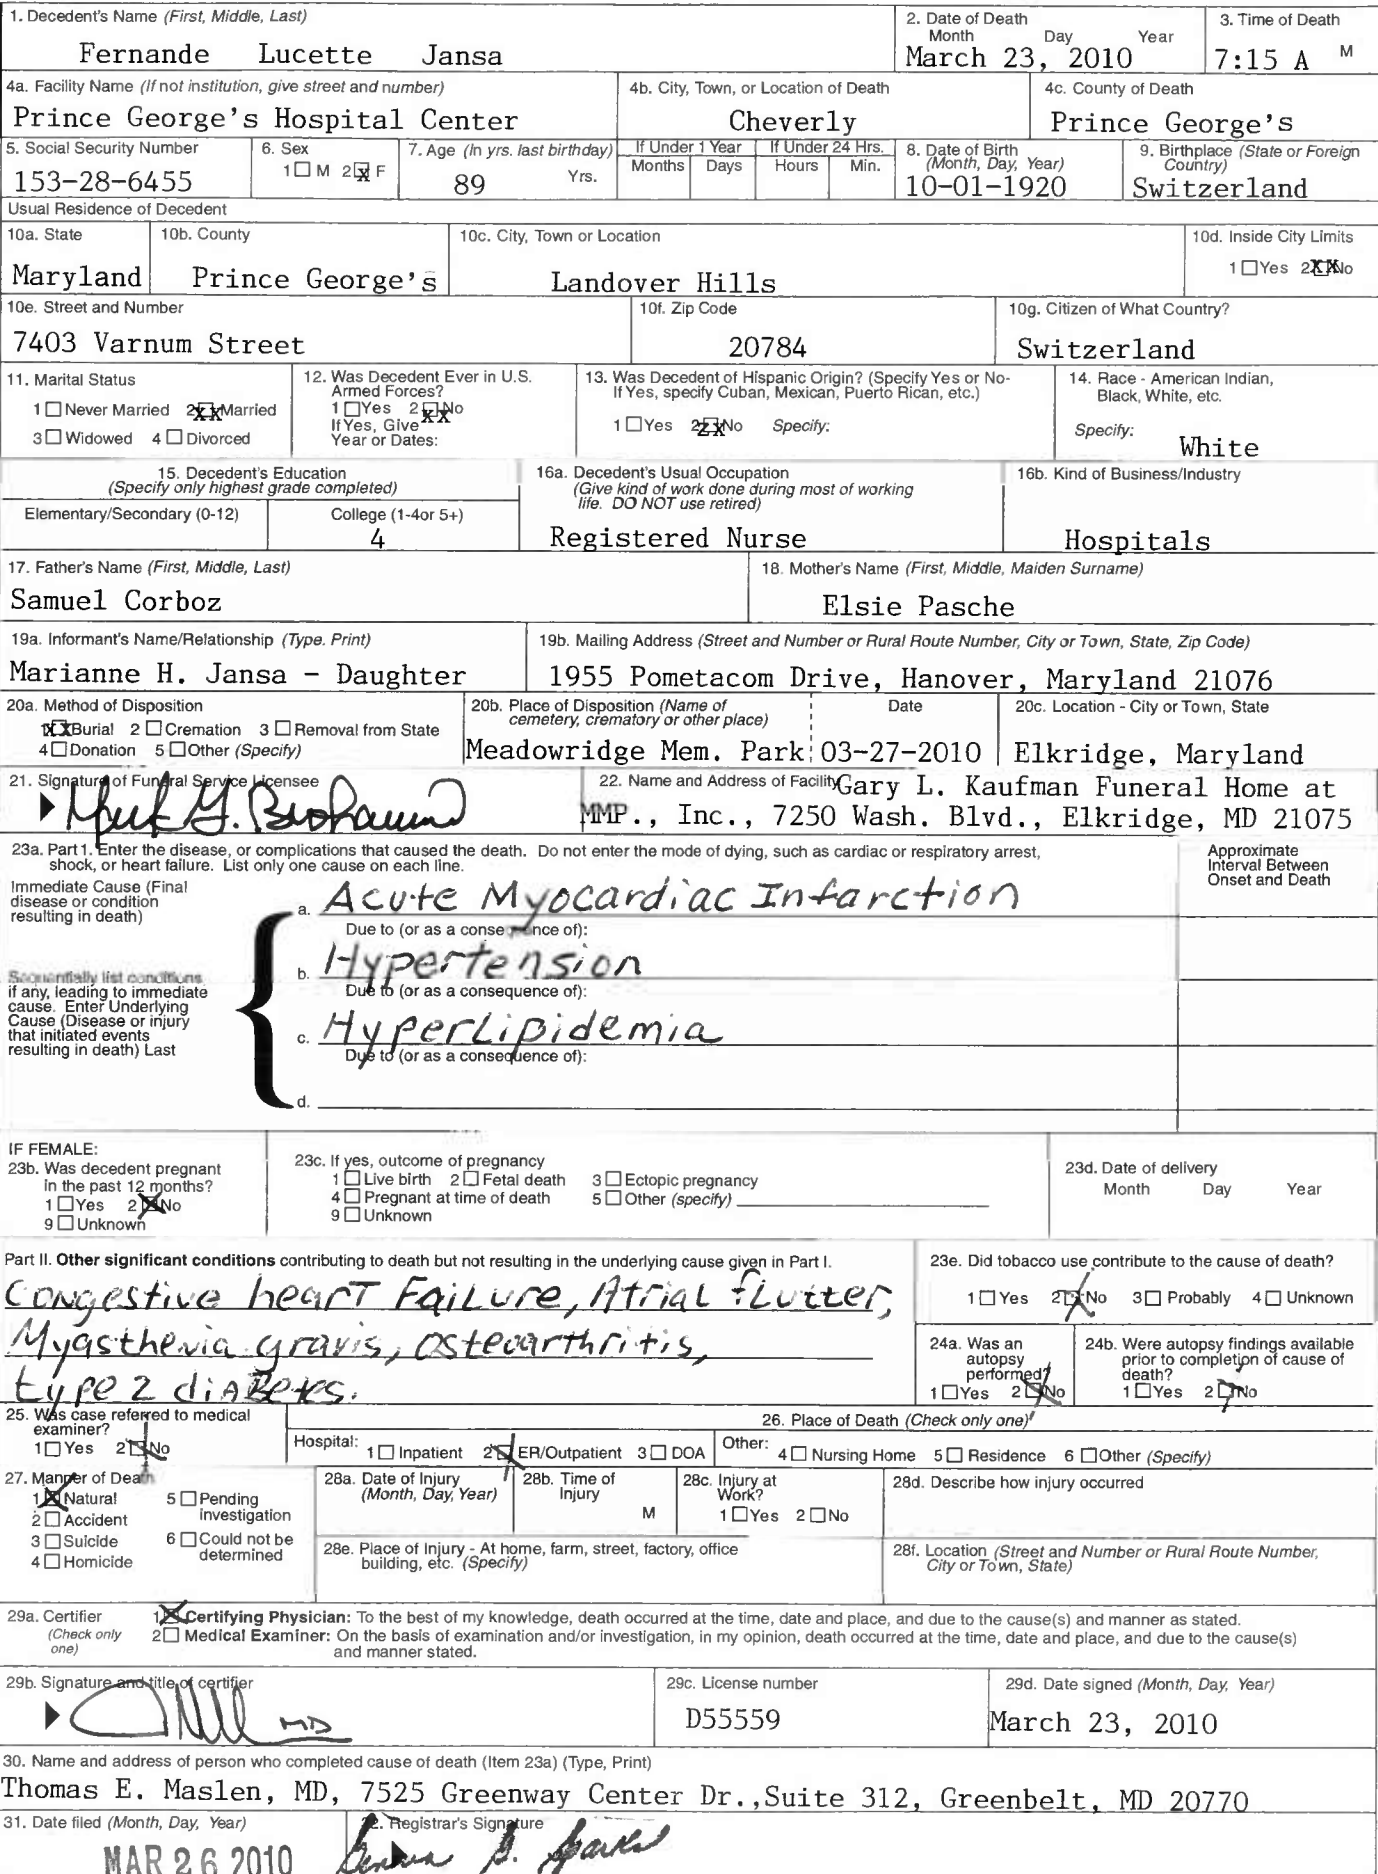 1. Decedent's Name (First, Middle, Last)
Fernande Lucette Jansa
2. Date of Death
Month Day Year
March 23, 2010
3. Time of Death
7:15 A M
4a. Facility Name (If not institution, give street and number)
Prince George's Hospital Center
4b. City, Town, or Location of Death
Cheverly
4c. County of Death
Prince George's
5. Social Security Number
153-28-6455
6. Sex
1☐ M 2☒ F
7. Age (In yrs. last birthday)
89 Yrs.
If Under 1 Year
Months Days
If Under 24 Hrs.
Hours Min.
8. Date of Birth
(Month, Day, Year)
10-01-1920
9. Birthplace (State or Foreign
Country)
Switzerland
Usual Residence of Decedent
10a. State
Maryland
10b. County
Prince George's
10c. City, Town or Location
Landover Hills
10d. Inside City Limits
1☐Yes 2☒No
10e. Street and Number
7403 Varnum Street
10f. Zip Code
20784
10g. Citizen of What Country?
Switzerland
11. Marital Status
1☐Never Married 2☒Married
3☐Widowed 4☐Divorced
12. Was Decedent Ever in U.S.
Armed Forces?
1☐Yes 2☒No
If Yes, Give
Year or Dates:
13. Was Decedent of Hispanic Origin? (Specify Yes or No-
If Yes, specify Cuban, Mexican, Puerto Rican, etc.)
1☐Yes 2☒No Specify:
14. Race - American Indian,
Black, White, etc.
Specify:
White
15. Decedent's Education
(Specify only highest grade completed)
Elementary/Secondary (0-12)
College (1-4or 5+)
4
16a. Decedent's Usual Occupation
(Give kind of work done during most of working
life. DO NOT use retired)
Registered Nurse
16b. Kind of Business/Industry
Hospitals
17. Father's Name (First, Middle, Last)
Samuel Corboz
18. Mother's Name (First, Middle, Maiden Surname)
Elsie Pasche
19a. Informant's Name/Relationship (Type, Print)
Marianne H. Jansa - Daughter
19b. Mailing Address (Street and Number or Rural Route Number, City or Town, State, Zip Code)
1955 Pometacom Drive, Hanover, Maryland 21076
20a. Method of Disposition
1☒Burial 2☐Cremation 3☐Removal from State
4☐Donation 5☐Other (Specify)
20b. Place of Disposition (Name of
cemetery, crematory or other place)
Meadowridge Mem. Park
Date
03-27-2010
20c. Location - City or Town, State
Elkridge, Maryland
21. Signature of Funeral Service Licensee
22. Name and Address of Facility Gary L. Kaufman Funeral Home at
MMP., Inc., 7250 Wash. Blvd., Elkridge, MD 21075
23a. Part 1. Enter the disease, or complications that caused the death. Do not enter the mode of dying, such as cardiac or respiratory arrest,
shock, or heart failure. List only one cause on each line.
Approximate
Interval Between
Onset and Death
Immediate Cause (Final
disease or condition
resulting in death)
a. Acute Myocardiac Infarction
Due to (or as a consequence of):
Sequentially list conditions
if any, leading to immediate
cause. Enter Underlying
Cause (Disease or injury
that initiated events
resulting in death) Last
b. Hypertension
Due to (or as a consequence of):
c. Hyperlipidemia
Due to (or as a consequence of):
d.
IF FEMALE:
23b. Was decedent pregnant
in the past 12 months?
1☐Yes 2☒No
9☐Unknown
23c. If yes, outcome of pregnancy
1☐Live birth 2☐Fetal death 3☐Ectopic pregnancy
4☐Pregnant at time of death 5☐Other (specify)
9☐Unknown
23d. Date of delivery
Month Day Year
Part II. Other significant conditions contributing to death but not resulting in the underlying cause given in Part I.
Congestive heart Failure, Atrial flutter,
Myasthenia gravis, osteoarthritis,
type 2 diabetes.
23e. Did tobacco use contribute to the cause of death?
1☐Yes 2☒No 3☐Probably 4☐Unknown
24a. Was an
autopsy
performed?
1☐Yes 2☒No
24b. Were autopsy findings available
prior to completion of cause of
death?
1☐Yes 2☒No
25. Was case referred to medical
examiner?
1☐Yes 2☒No
26. Place of Death (Check only one)
Hospital: 1☐Inpatient 2☒ER/Outpatient 3☐DOA
Other: 4☐Nursing Home 5☐Residence 6☐Other (Specify)
27. Manner of Death
1☒Natural 5☐Pending
investigation
2☐Accident
3☐Suicide 6☐Could not be
determined
4☐Homicide
28a. Date of Injury
(Month, Day, Year)
28b. Time of
Injury
M
28c. Injury at
Work?
1☐Yes 2☐No
28d. Describe how injury occurred
28e. Place of Injury - At home, farm, street, factory, office
building, etc. (Specify)
28f. Location (Street and Number or Rural Route Number,
City or Town, State)
29a. Certifier
(Check only
one)
1☒Certifying Physician: To the best of my knowledge, death occurred at the time, date and place, and due to the cause(s) and manner as stated.
2☐Medical Examiner: On the basis of examination and/or investigation, in my opinion, death occurred at the time, date and place, and due to the cause(s)
and manner stated.
29b. Signature and title of certifier
MD
29c. License number
D55559
29d. Date signed (Month, Day, Year)
March 23, 2010
30. Name and address of person who completed cause of death (Item 23a) (Type, Print)
Thomas E. Maslen, MD, 7525 Greenway Center Dr.,Suite 312, Greenbelt, MD 20770
31. Date filed (Month, Day, Year)
MAR 26 2010
32. Registrar's Signature